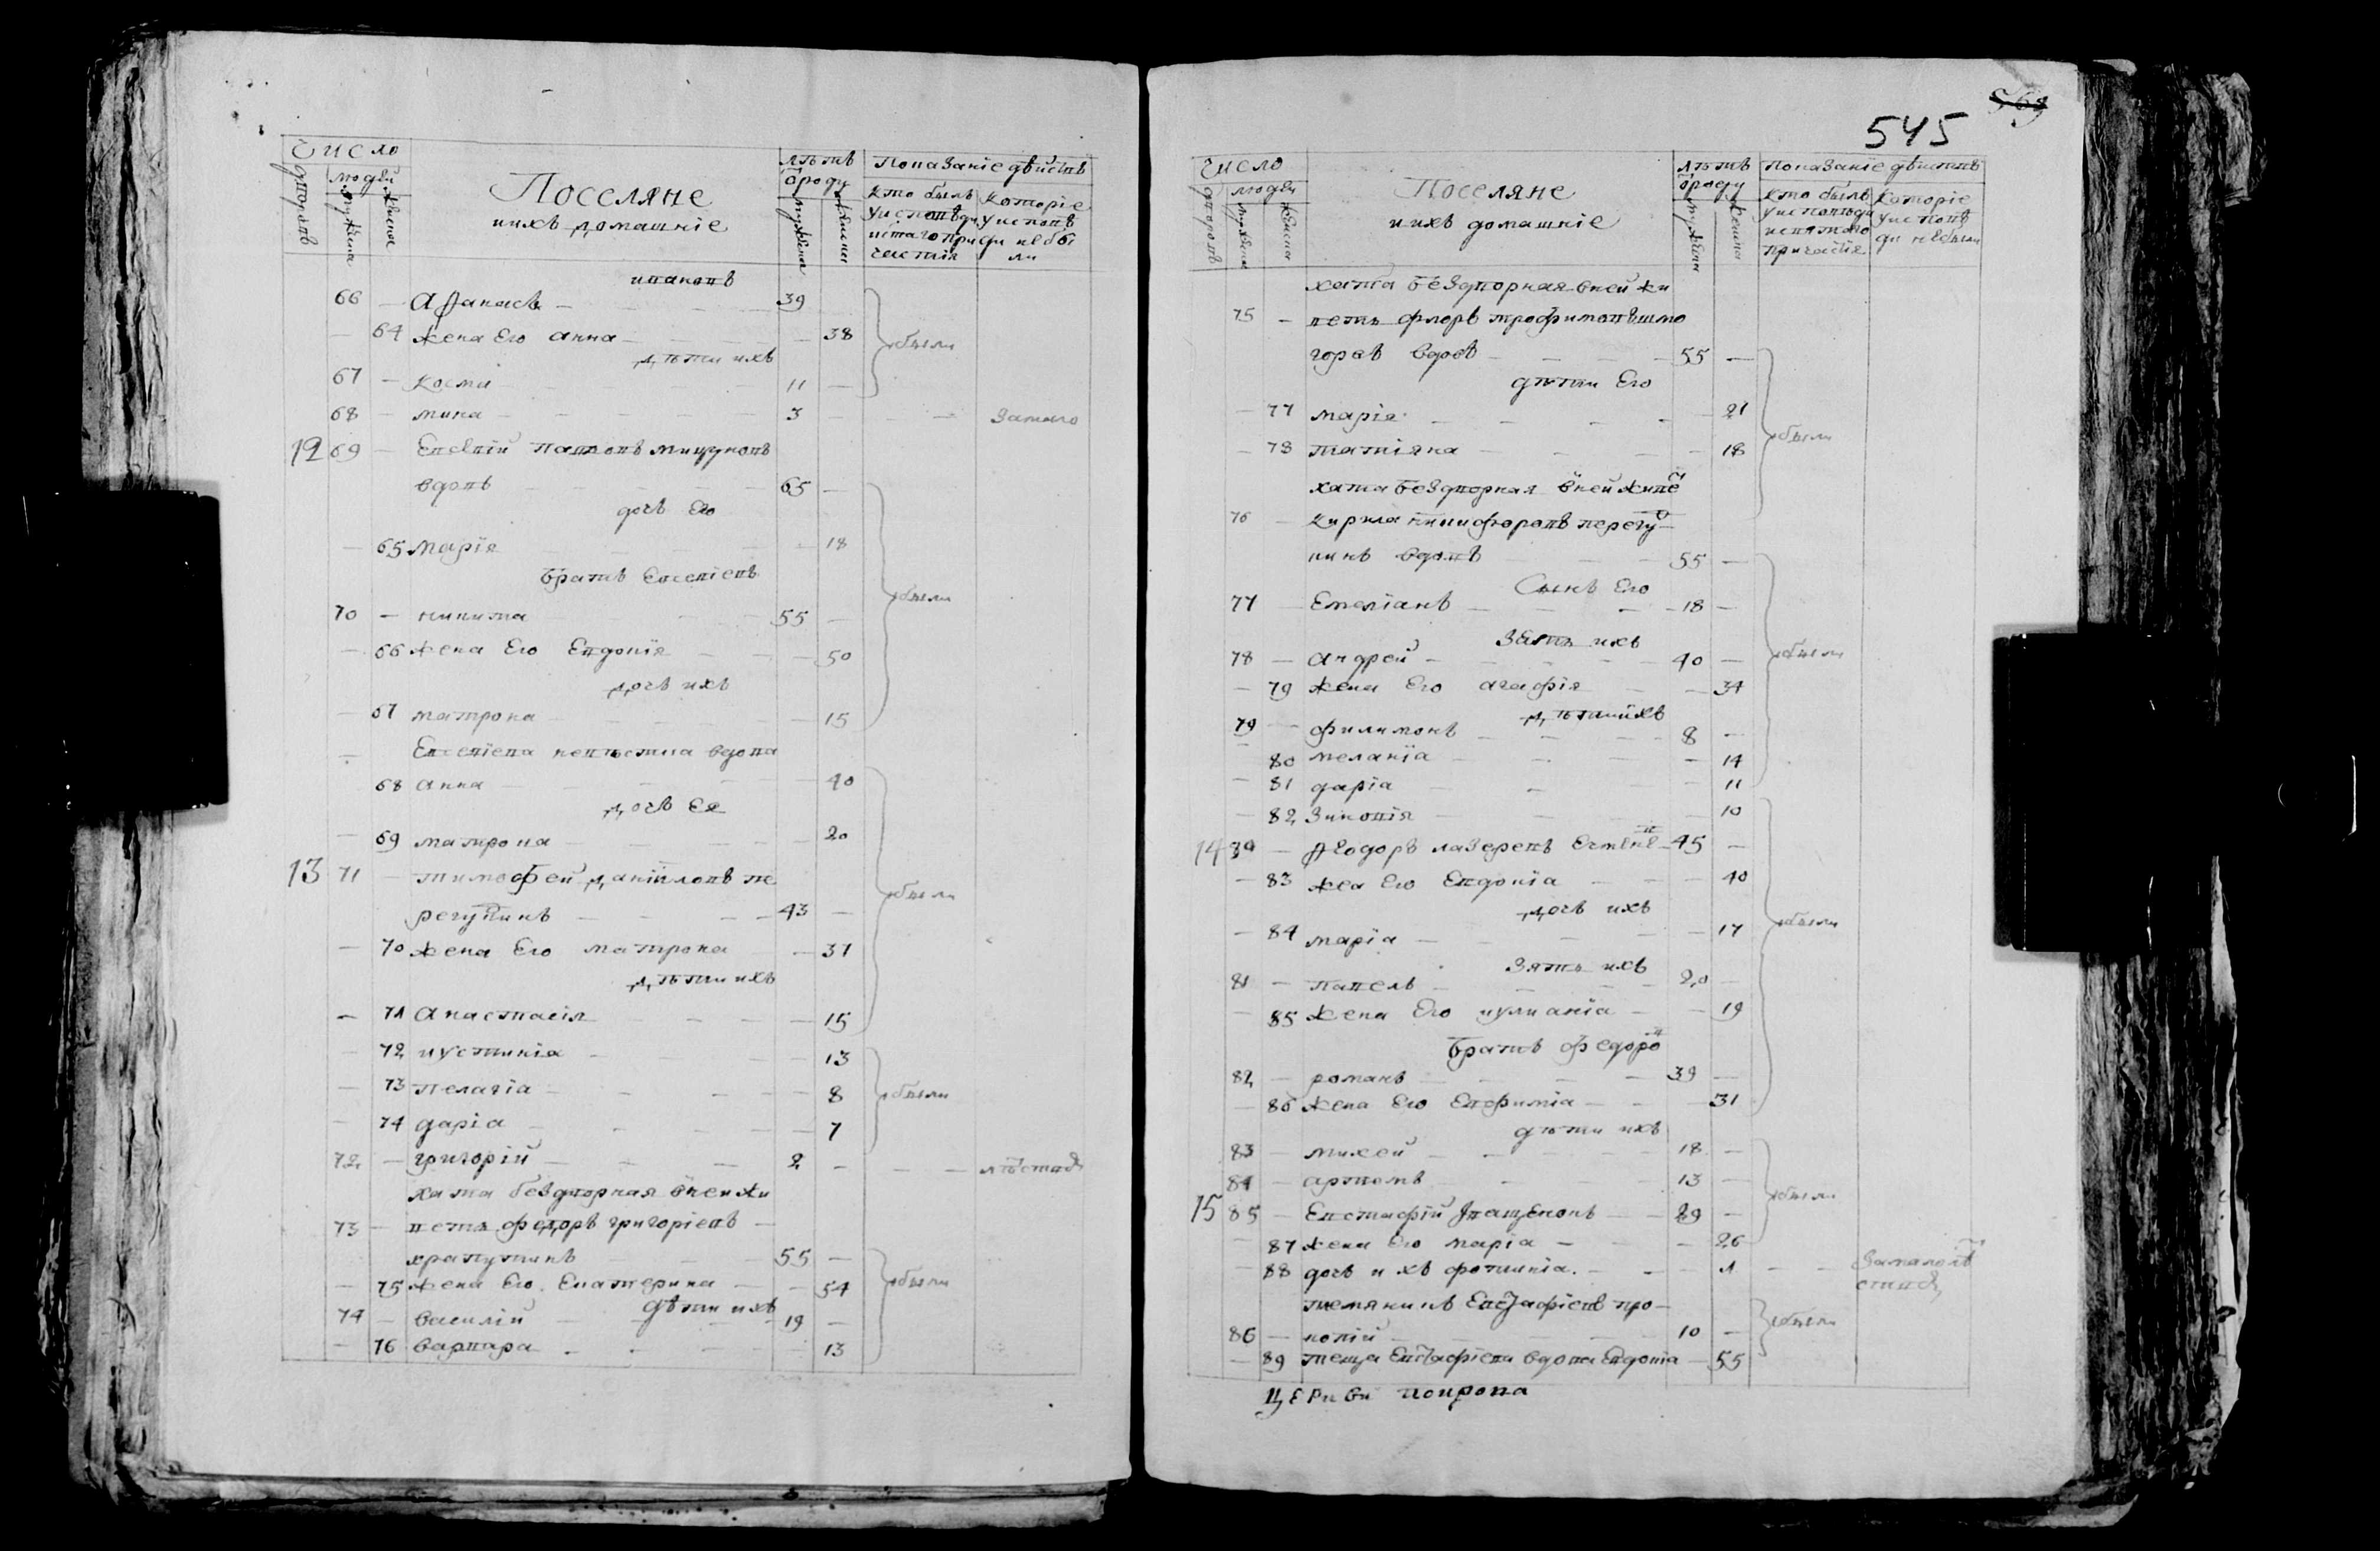 Число
дворовъ
людей
мужеска
женска
Поселяне
и ихъ домашніе
лѣтъ
ѿроду
мужеска
женска
Показаніе дѣйствъ
кто былъ
у исповѣди
и стаго при
частія
которіе
у исповѣ
ди не бы
ли
ивановъ
66 — Афанасъ — 39
— 64 жена Его анна — 38
дѣти ихъ
были
67 — косма — 11 —
68 — мина — 3 — — — за мало
12 69 — Евсевій павловъ
вдовъ — 65 —
дочъ Его
— 65 Марія — 18
братъ Евсевіевъ
были
70 — никита — 55 —
— 66 жена Его Евдокія — 50
дочъ ихъ
— 67 матрона — 15
— Евсевіева невѣстка вдова
68 анна — 40
дочъ Ея
— 69 матрона — 20
13 71 — тимофей даніиловъ пе
были
регудинъ — 43 —
— 70 жена Его матрона — 37
дѣти ихъ
— 71 Анастасія — 15
— 72 иустинія — 13
— 73 пелагіа — 8
были
— 74 даріа — 7
72 — григорій — 2 — — —
хата бездворная в ней жи
73 — ветъ федоръ григоріевъ —
храпутинъ — 55 —
— 75 жена Его Екатерина — 54
были
дѣти ихъ
74 — василій — 19 —
— 76 варвара — 13
569
545
Число
дворовъ
людей
мужеска
женска
Поселяне
и ихъ домашніе
лѣтъ
ѿроду
мужеска
женска
Показаніе дѣйствъ
кто былъ
у исповѣди
и святаго
причастія
которіе
у исповѣ
ди не были
хата бездворная в ней жи
75 — ветъ флоръ трофимовъ
вдовъ — 55 —
дѣти Его
— 77 марія — 21
были
— 78 татіяна — 18
хата бездворная в ней живе
76 — кирила никифоровъ перегу
нинъ вдовъ — 55 —
Сынъ Его
77 — Емеліанъ — 18 —
зять ихъ
были
78 — андрей — 40 —
— 79 жена Его агафія — 34
дѣти ихъ
79 — филимонъ — 8 —
— 80 меланіа — 14
— 81 даріа — 11
— 82 зиновія — 10
14 — Феодоръ лазеревъ — 45 —
— 83 жена Его Евдокіа — 40
дочъ ихъ
были
— 84 маріа — 17
зять ихъ
81 — павелъ — 20 —
— 85 жена Его иулианіа — 19
братъ федоро
82 — романъ — 39 —
— 86 жена Его Евфиміа — 31
дѣти ихъ
83 — михей — 18 —
84 — артемъ — 13 —
были
15 85 — Евстафій — 29 —
— 87 жена Его маріа — 26
— 88 дочъ ихъ фотиніа — 1 — —
племяникъ Евстафіевъ про
были
86 — копій — 10 —
— 89 теща Евстафіева вдова Евдокіа — 55
Церкви покрова